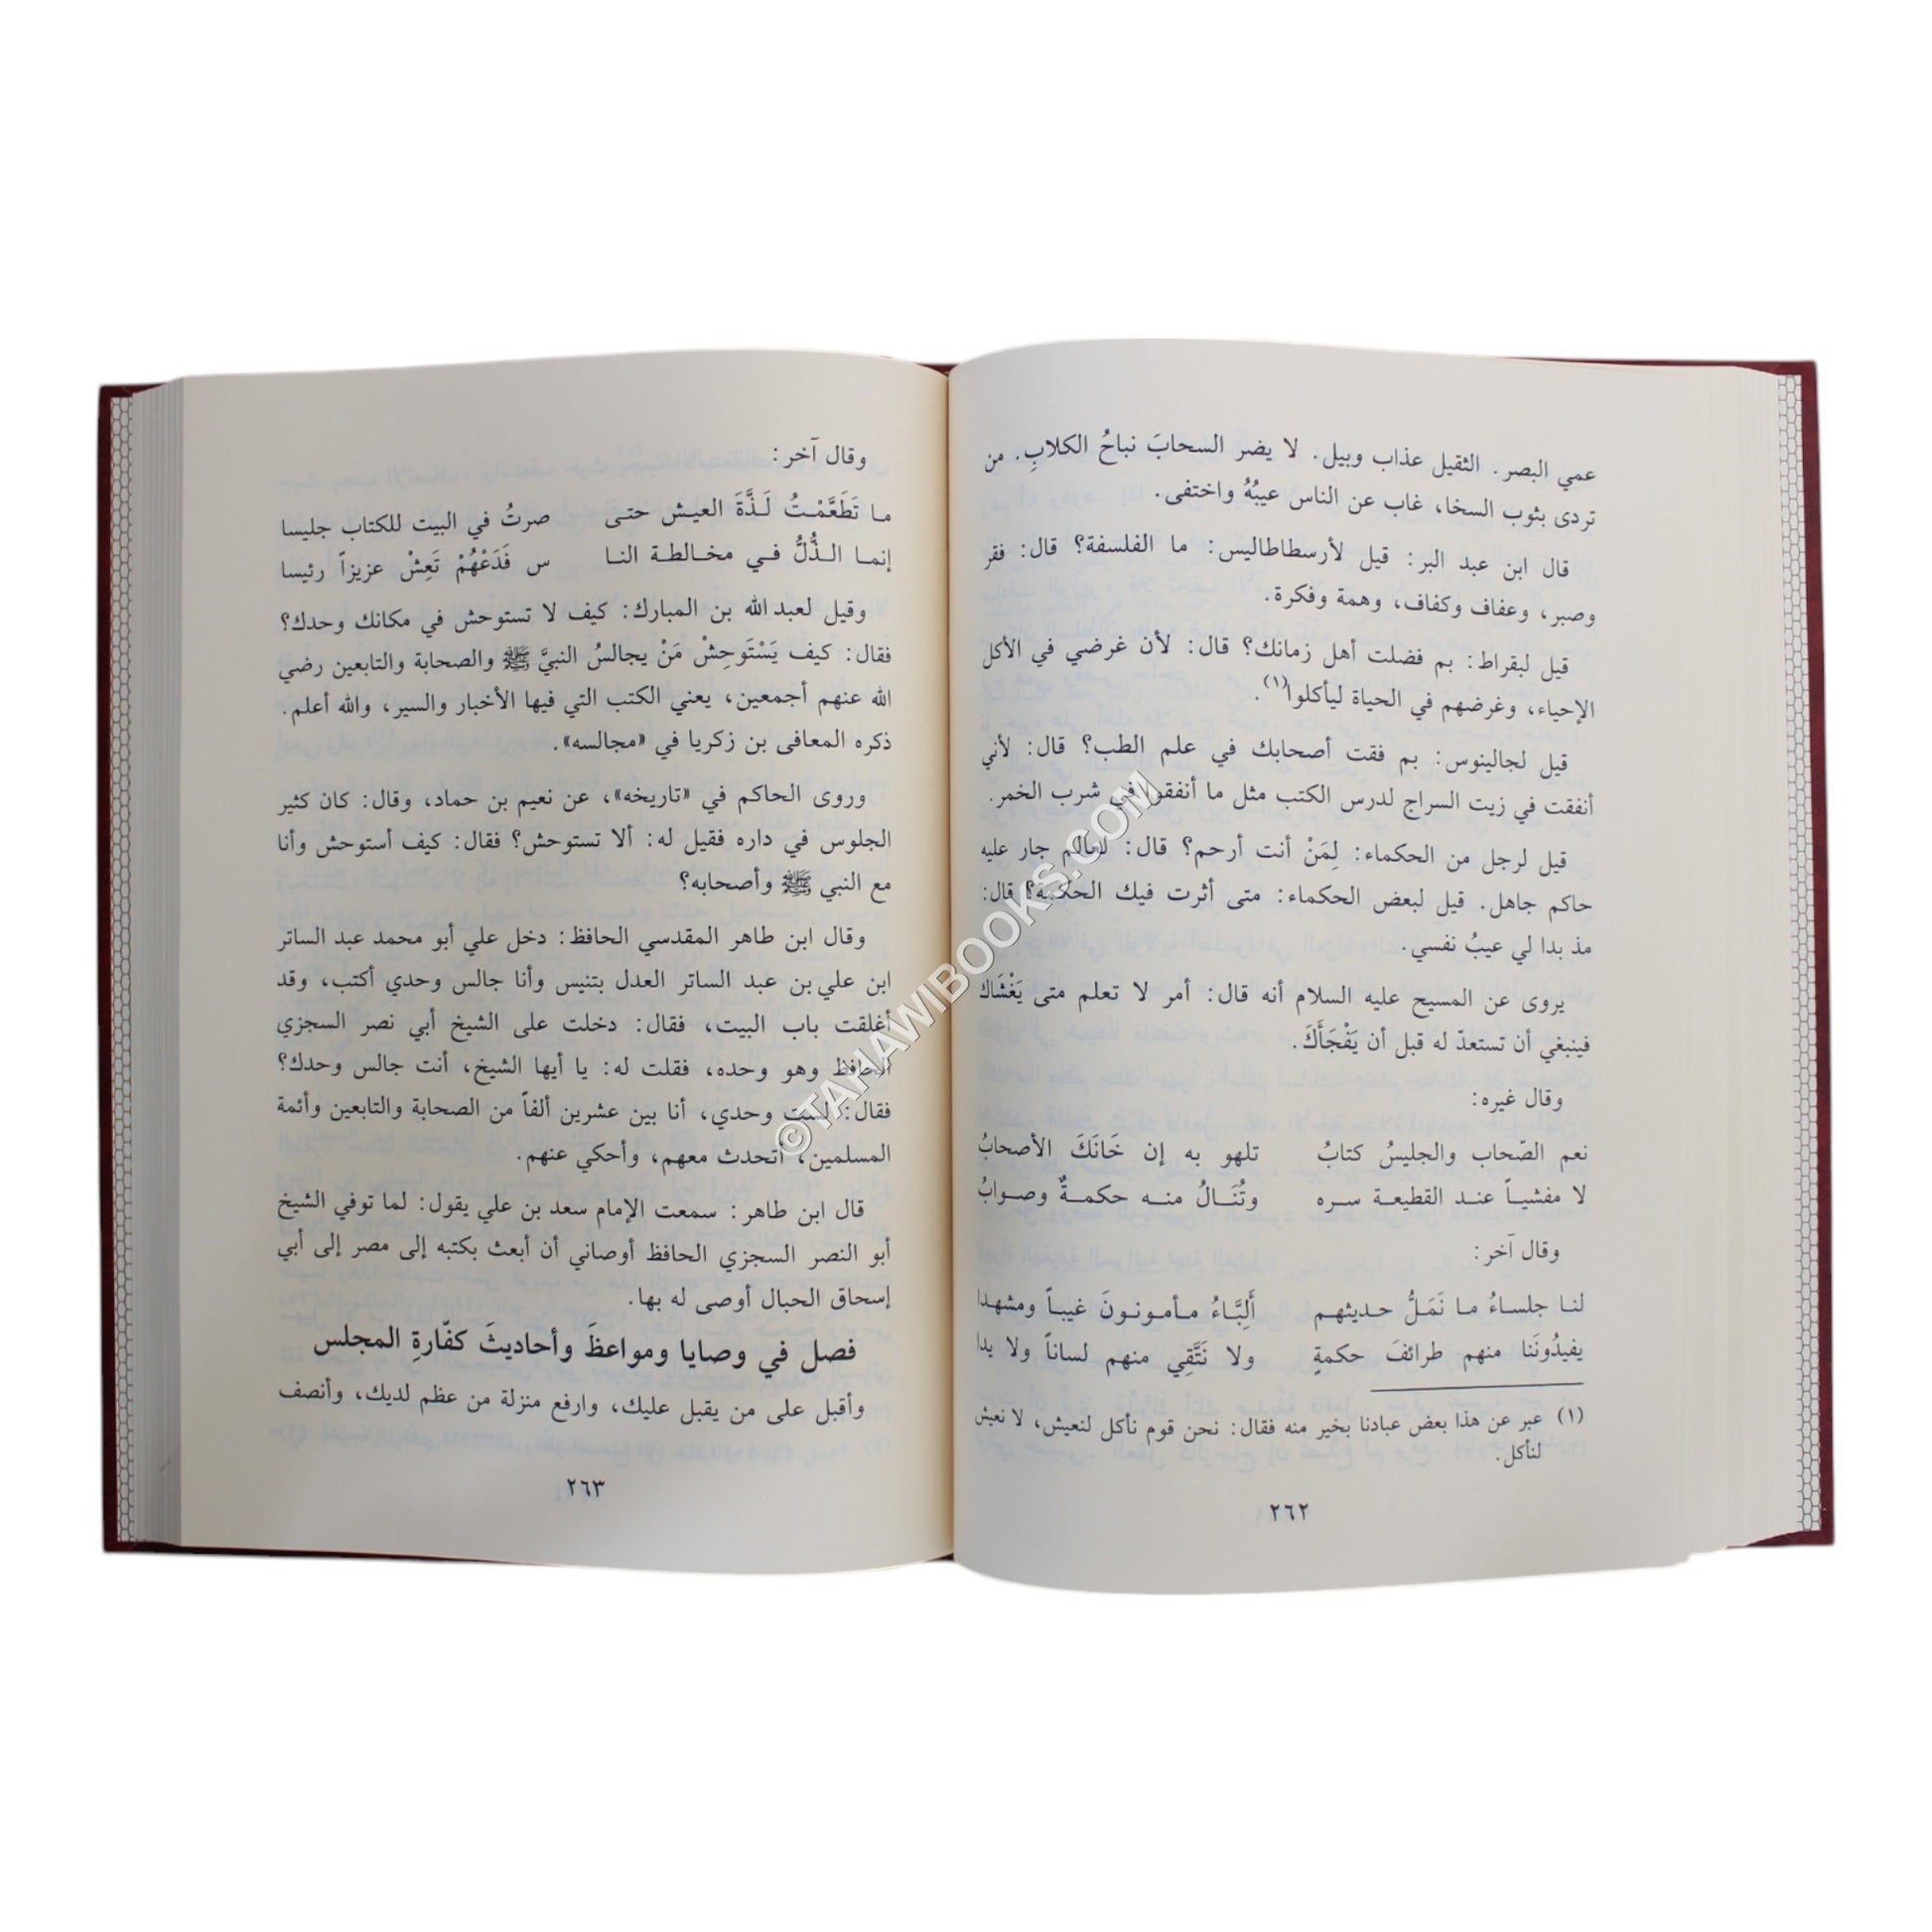 عمي البصر. الثقيل عذاب وبيل. لا يضر السحابَ نباحُ الكلابِ. من
تردى بثوب السخا، غاب عن الناس عيبُهُ واختفى.
قال ابن عبد البر: قيل لأرسطاطاليس: ما الفلسفة؟ قال: فقر
وصبر، وعفاف وكفاف، وهمة وفكرة.
قيل لبقراط: بم فضلت أهل زمانك؟ قال: لأن غرضي في الأكل
الإحياء، وغرضهم في الحياة ليأكلوا(١).
قيل لجالينوس: بم فقت أصحابك في علم الطب؟ قال: لأني
أنفقت في زيت السراج لدرس الكتب مثل ما أنفقوا في شرب الخمر.
قيل لرجل من الحكماء: لِمَنْ أنت أرحم؟ قال: لعالم جار عليه
حاكم جاهل. قيل لبعض الحكماء: متى أثرت فيك الحكمة؟ قال:
مذ بدا لي عيبُ نفسي.
يروى عن المسيح عليه السلام أنه قال: أمر لا تعلم متى يَغْشَاك
فينبغي أن تستعدّ له قبل أن يَفْجَأَكَ.
وقال غيره:
نعم الصّحاب والجليسُ كتابُ تلهو به إن خَانَكَ الأصحابُ
لا مفشياً عند القطيعة سره وتُنَالُ منه حكمةٌ وصوابُ
وقال آخر:
لنا جلساءُ ما نَمَلُّ حديثهم أَلِبَّاءُ مأمونونَ غيباً ومشهدا
يفيدُونَنا منهم طرائفَ حكمةٍ ولا نَتَّقِي منهم لساناً ولا يدا
(١) عبر عن هذا بعض عبادنا بخير منه فقال: نحن قوم نأكل لنعيش، لا نعيش
لنأكل.
٢٦٢
وقال آخر:
ما تَطَعَّمْتُ لَذَّةَ العيش حتى صرتُ في البيت للكتاب جليسا
إنما الذُّلُّ في مخالطة النا س فَدَعْهُمْ تَعِشْ عزيزاً رئيسا
وقيل لعبد الله بن المبارك: كيف لا تستوحش في مكانك وحدك؟
فقال: كيف يَسْتَوحِشْ مَنْ يجالسُ النبيَّ ﷺ والصحابة والتابعين رضي
الله عنهم أجمعين، يعني الكتب التي فيها الأخبار والسير، والله أعلم.
ذكره المعافى بن زكريا في «مجالسه».
وروى الحاكم في «تاريخه»، عن نعيم بن حماد، وقال: كان كثير
الجلوس في داره فقيل له: ألا تستوحش؟ فقال: كيف أستوحش وأنا
مع النبي ﷺ وأصحابه؟
وقال ابن طاهر المقدسي الحافظ: دخل علي أبو محمد عبد الساتر
ابن علي بن عبد الساتر العدل بتنيس وأنا جالس وحدي أكتب، وقد
أغلقت باب البيت، فقال: دخلت على الشيخ أبي نصر السجزي
الحافظ وهو وحده، فقلت له: يا أيها الشيخ، أنت جالس وحدك؟
فقال: لست وحدي، أنا بين عشرين ألفاً من الصحابة والتابعين وأئمة
المسلمين، أتحدث معهم، وأحكي عنهم.
قال ابن طاهر: سمعت الإمام سعد بن علي يقول: لما توفي الشيخ
أبو النصر السجزي الحافظ أوصاني أن أبعث بكتبه إلى مصر إلى أبي
إسحاق الحبال أوصى له بها.
فصل في وصايا ومواعظَ وأحاديثَ كفّارةِ المجلس
وأقبل على من يقبل عليك، وارفع منزلة من عظم لديك، وأنصف
٢٦٣
©TAHAWIBOOKS.COM